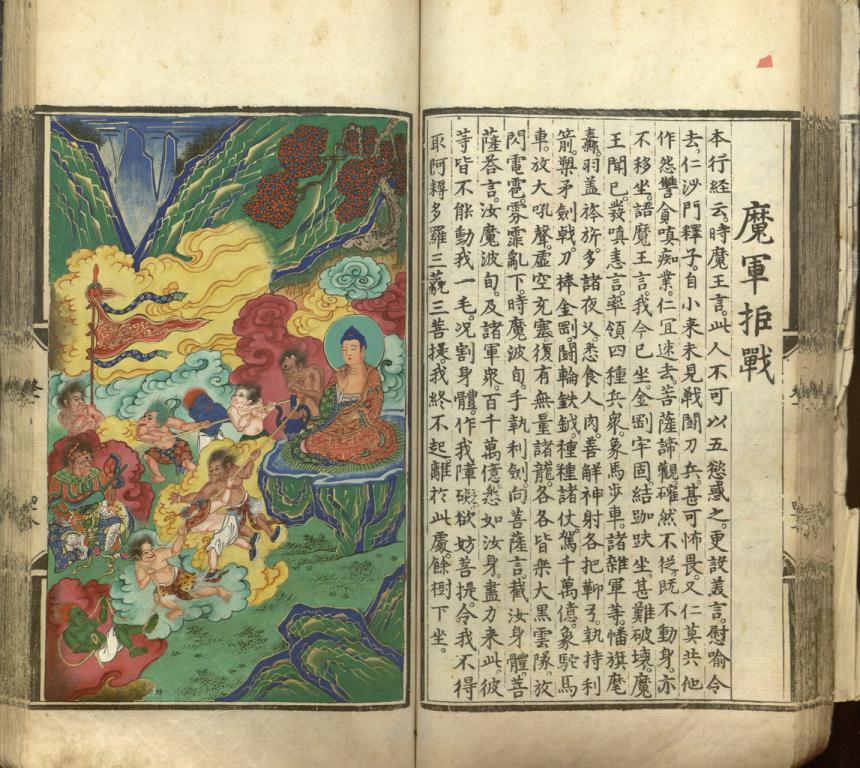 魔軍拒戰
本行經云。時魔王言。此人不可以五慾惑之。更設羙言。慰喻令
去。仁沙門釋子。自小來未見戰鬪刀兵。甚可怖畏。又仁莫共他
作怨讐貪嗔痴業。仁宜速去。菩薩諦觀。確然不從。既不動身。亦
不移坐。語魔王言。我今已坐。金剛牢固。結跏趺坐。甚難破壞。魔
王聞已。發嗔恚言。率領四種兵衆。象馬步車。諸雜軍等。幡旗麾
纛。羽蓋旍旂。多諸夜义。悉食人肉。善解神射。各把弓。執持利
箭。槊矛劍戟。刀棒金剛。鬪輪鈇鉞。種種諸仗。駕千萬億。象駝馬
車。放大吼聲。虛空充塞。復有無量諸龍。各各皆乗大黑雲隊。放
閃電雹。雰霏亂下。時魔波旬。手執利劍。向菩薩言。截汝身體。菩
薩荅言。汝魔波旬。及諸軍衆。百千萬億。悉如汝身。盡力來此。彼
等皆不能動我一毛。况割身體。作我障礙。欲妨菩提。令我不得
耴阿耨多羅三藐三菩提。我終不起離於此處。餘樹下坐。